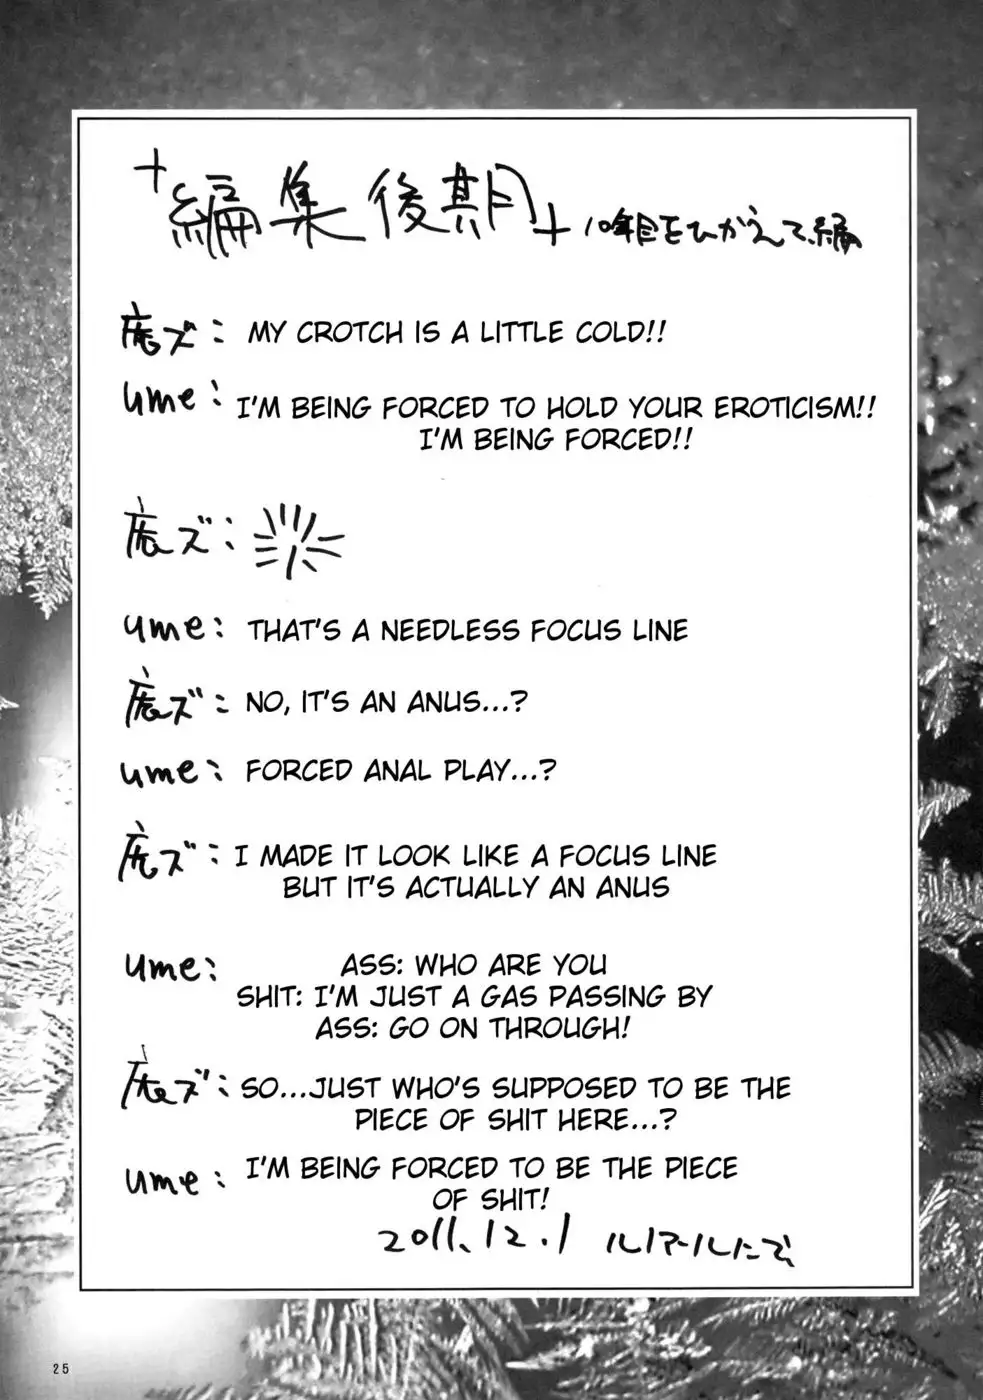 +編集後期+ 10年目をひかえて、編
庶ズ: MY CROTCH IS A LITTLE COLD!!
ume: I'M BEING FORCED TO HOLD YOUR EROTICISM!!
I'M BEING FORCED!!
ズ:
ume: THAT'S A NEEDLESS FOCUS LINE
ズ: NO, IT'S AN ANUS...?
ume: FORCED ANAL PLAY...?
ズ: I MADE IT LOOK LIKE A FOCUS LINE
BUT IT'S ACTUALLY AN ANUS
ume: ASS: WHO ARE YOU
SHIT: I'M JUST A GAS PASSING BY
ASS: GO ON THROUGH!
ズ: SO...JUST WHO'S SUPPOSED TO BE THE
PIECE OF SHIT HERE...?
ume: I'M BEING FORCED TO BE THE PIECE
OF SHIT!
2011.12.1 ルノアールにて
25